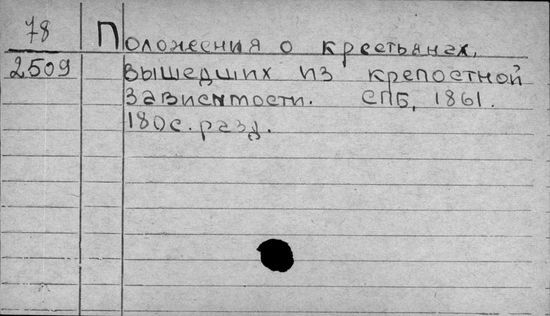 78
Положения о крестьянах,
2509
вышедших из крепостной
зависимости. СПБ, 1861.
180с. разд.